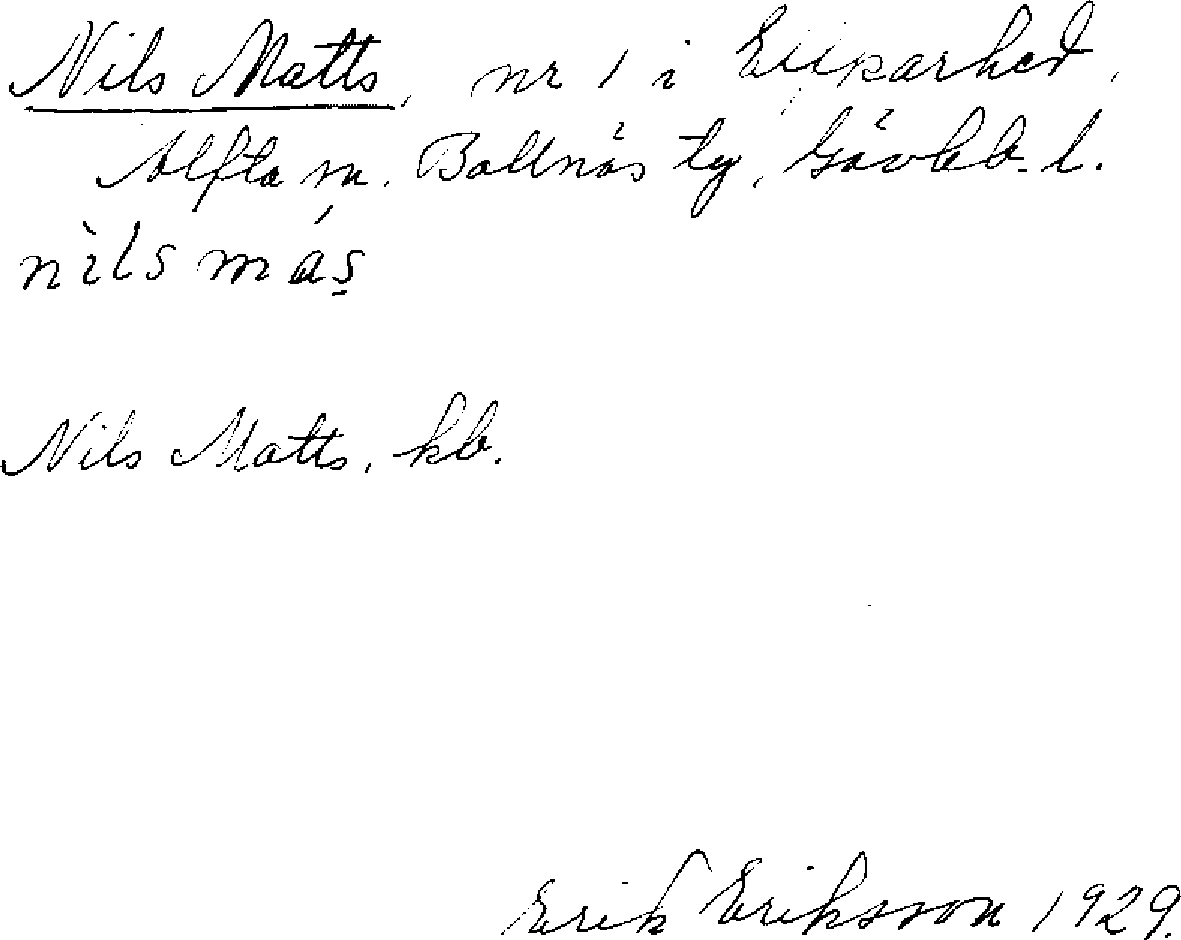 Nils Matts, nr 1 i
Alfta sn. Bollnäs tg, Gävleb. l.
nìls máş
Nils Matts, kb.
Erik Eriksson 1929.